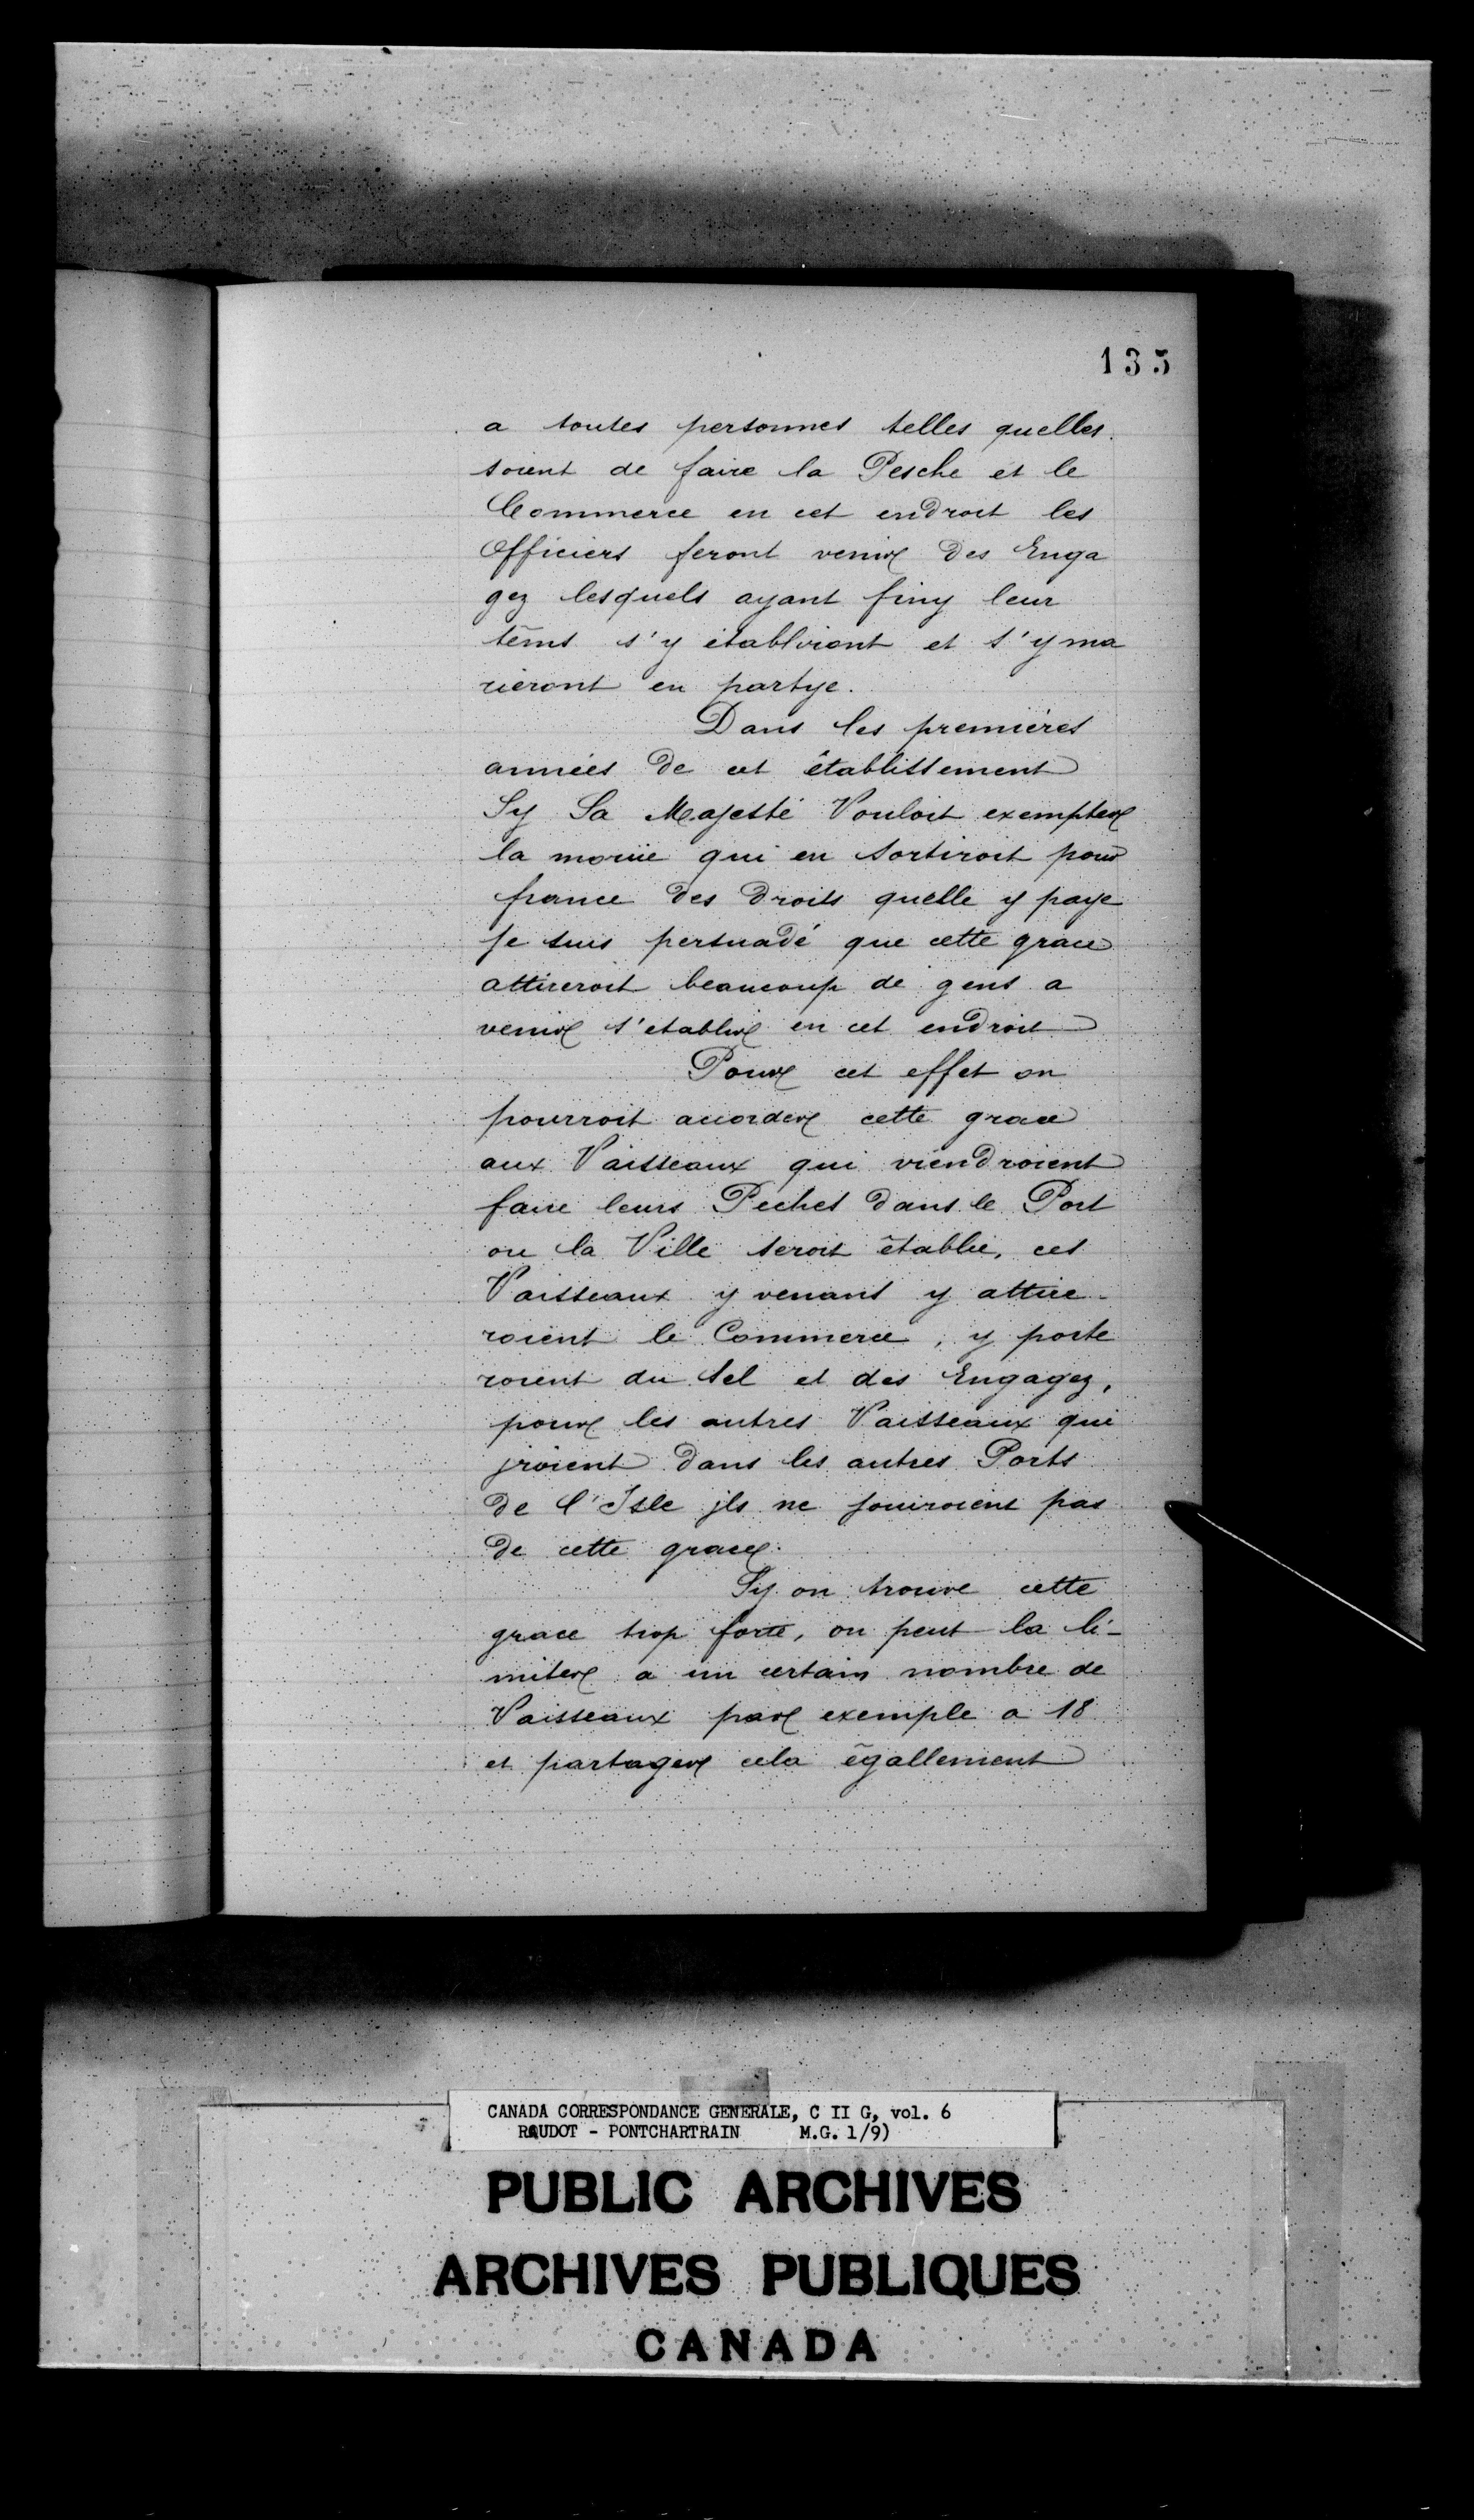 135
a toutes personnes telles quelles
soient de faire la Pesche et le
Commerce en cet endroit les
Officiers feront venir des Enga
gez lesquels ayant finy leur
tems s'y établiront et s'y ma
rieront en partye.
Dans les premières
années de cet établissement
Sy Sa Majesté Vouloit exempter
la morüe qui en sortiroit pour
france des droits quelle y paye
Je suis persuadé que cette grace
attireroit beaucoup de gens a
venir s'etablir en cet endroit
Pour cet effet on
pourroit accorder cette grace
aux Vaisseaux qui viendroient
faire leurs Peches dans le Port
ou la Ville seroit établie, ces
Vaisseaux y venant y attire-
roient le Commerce, y porte
roient du sel et des Engagez,
pour les autres Vaisseaux qui
jroient dans les autres Ports
de l'Isle jls ne jouiroient pas
de cette grace.
Sy on trouve cette
grace trop forte, on peut la li-
miter a un certain nombre de
Vaisseaux par exemple a 18
et partager cela égallement
CANADA CORRESPONDANCE GENERALE, C II G, vol. 6
RAUDOT - PONTCHARTRAIN M.G. 1/9)
PUBLIC ARCHIVES
ARCHIVES PUBLIQUES
CANADA